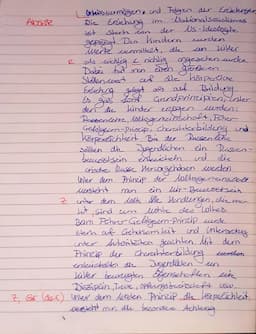 und Folgen der Erziehung
Die Erziehung im Nationalsozialismus
ist stark von der NS-Ideologie
geprägt. Den Kindern wurden
Werte vermittelt, die an Hitler
R als wichtig & richtig angesehen wurden
Dabei hat man einen größeren
Stellenwert auf die körperliche
Erziehung gelegt als auf Bildung
Es gab fünf Grundprinzipien, unter
den die Kinder erzogen wurden:
Rassenlehre, Volksgemeinschaft, Führer-
Gefolgschafts-Prinzip, Charakterbildung und
Körperlichkeit. Bei der Rassenlehre
sollen die Jugendlichen ein Rassen-
bewusstsein entwickeln und die
arische Rasse hervorgehoben werden
Unter dem Prinzip der Volksgemeinschaft
versteht man ein Wir-Bewusstsein
Z unter dem alle Handlungen, die man
tut, sind zum Wohle des Volkes
Beim Führer-Gefolgschafts-Prinzip wird
stark auf Gehorsamkeit und Unterordnung
unter Autoritäten geachtet. Mit dem
Prinzip der Charakterbildung
entwickelten die Jugendlichen von
Hitler bevorzugten Eigenschaften wie
Disziplin, Treue, Opferbereitschaft usw.
Z, Gr (das) Unter dem letzten Prinzip die Körperlichkeit
versteht man die besondere Achtung